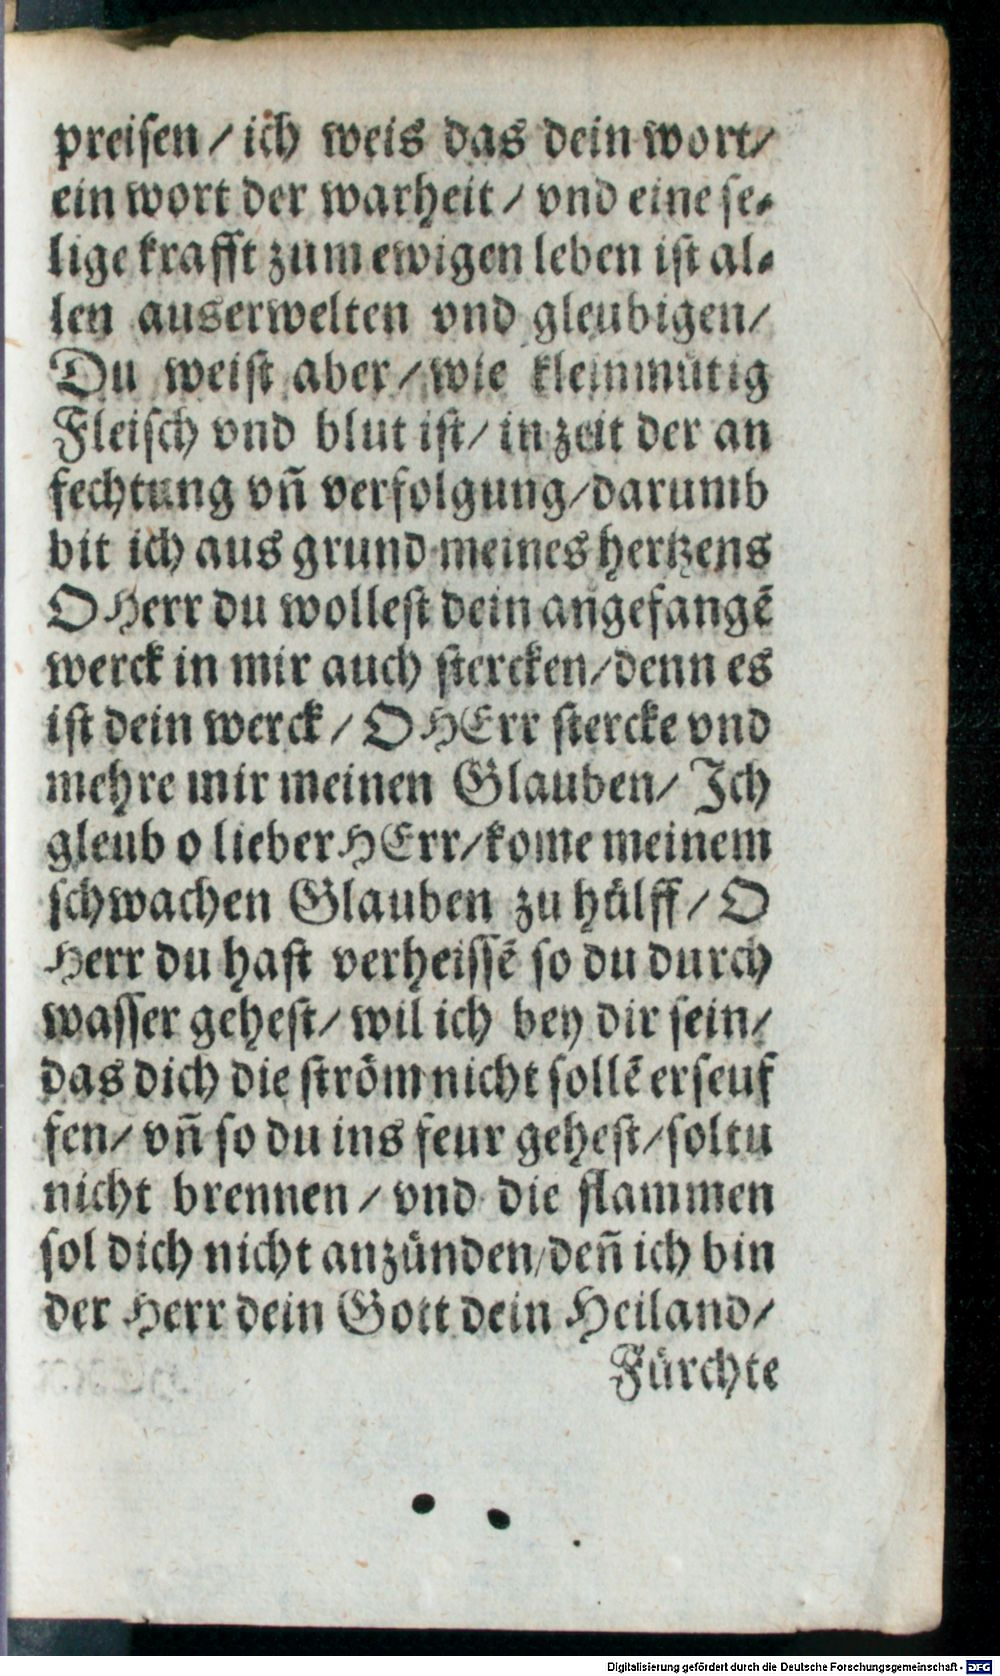 preisen / ich weis das dein wort /
ein wort der warheit / vnd eine se⸗
lige krafft zum ewigen leben ist al⸗
len auserwelten vnd gleubigen /
Du weist aber / wie kleinmütig
Fleisch vnd blut ist / in zeit der an
fechtung vñ verfolgung / darumb
bit ich aus grund meines hertzens
O Herr du wollest dein angefangẽ
werck in mir auch stercken / denn es
ist dein werck / O HErr stercke vnd
mehre mir meinen Glauben / Jch
gleub o lieber HErr / kome meinem
schwachen Glauben zu hülff / O
Herr du hast verheissẽ so du durch
wasser gehest / wil ich bey dir sein /
das dich die ström nicht sollẽ erseuf
fen / vñ so du ins feur gehest / soltu
nicht brennen / vnd die flammen
sol dich nicht anzünden / deñ ich bin
der Herr dein Gott dein Heiland /
Fürchte
Digitalisierung gefördert durch die Deutsche Forschungsgemeinschaft - DFG